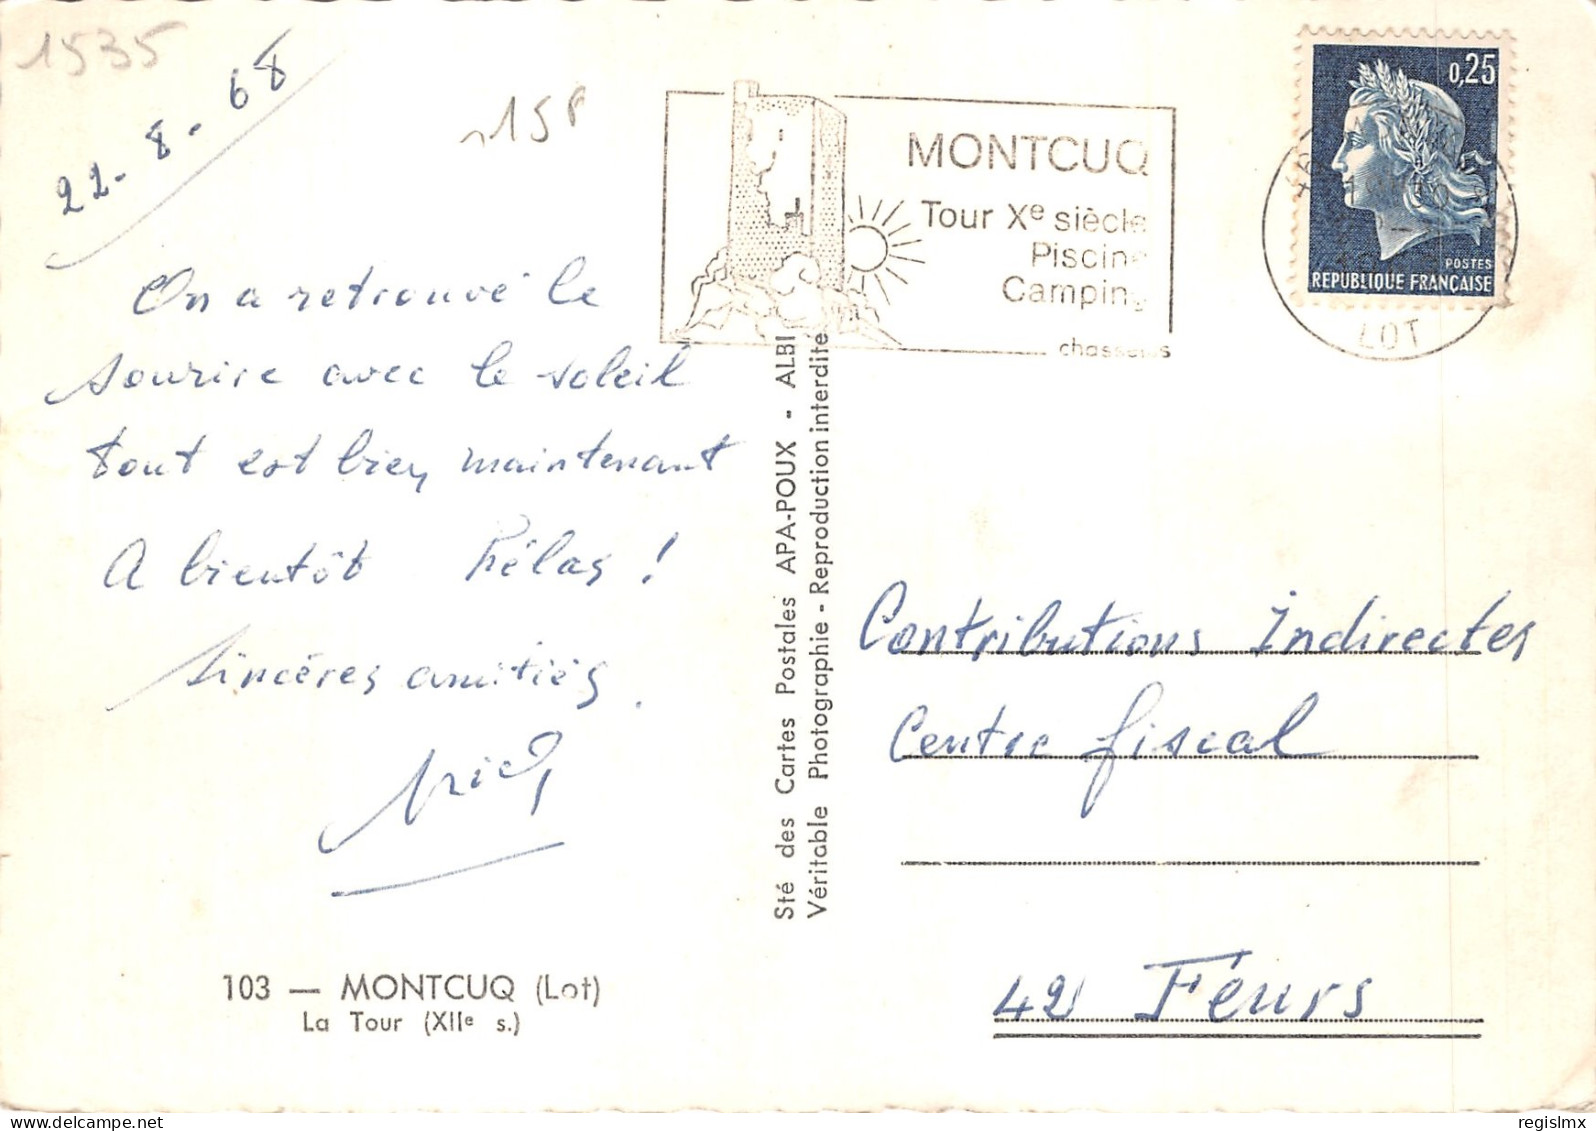 1535
22-8-68
n158
MONTCUQ
Tour Xe siècle
Piscine
Camping
chasselas
0,25
POSTES
REPUBLIQUE FRANÇAISE
LOT
On a retrouvé le
sourire avec le soleil
tout est bien maintenant
A bientôt hélas !
Sincères amitiés.
103 — MONTCUQ (Lot)
La Tour (XIIe s.)
Sté des Cartes Postales APA-POUX - ALBI
Véritable Photographie - Reproduction interdite
Contributions Indirectes
Centre fiscal
42 Feurs
regislmx